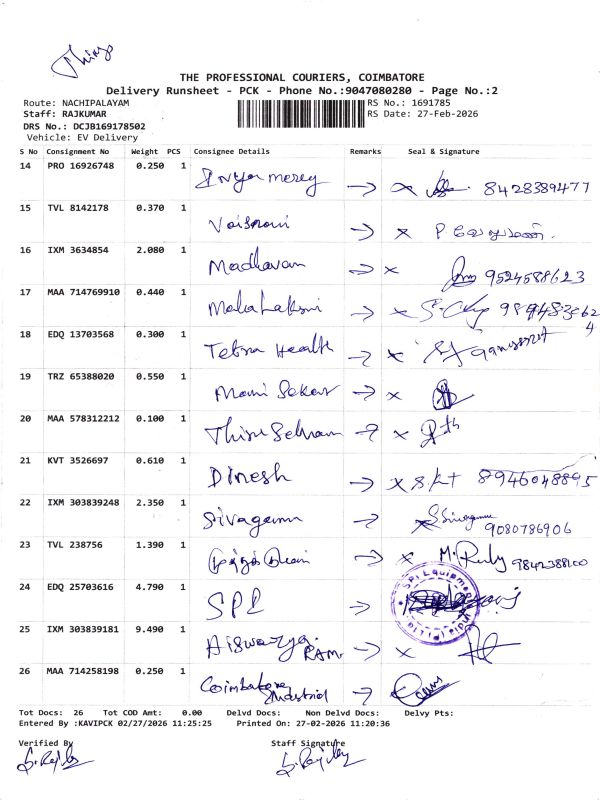 THE PROFESSIONAL COURIERS, COIMBATORE
Delivery Runsheet - PCK - Phone No.:9047080280 - Page No.:2
Route: NACHIPALAYAM RS No.: 1691785
Staff: RAJKUMAR RS Date: 27-Feb-2026
DRS No.: DCJB169178502
Vehicle: EV Delivery
S No Consignment No Weight PCS Consignee Details Remarks Seal & Signature
14 PRO 16926748 0.250 1 8428389477
15 TVL 8142178 0.370 1 Vaisnavi
16 IXM 3634854 2.080 1 Madhavan 9524588623
17 MAA 714769910 0.440 1 Mahalaksmi
18 EDQ 13703568 0.300 1 Tetra Health
19 TRZ 65388020 0.550 1 Mani Sekar
20 MAA 578312212 0.100 1 Thiru Selvam
21 KVT 3526697 0.610 1 Dinesh 8946048895
22 IXM 303839248 2.350 1 Sivagami 9080786906
23 TVL 238756 1.390 1 M. Ruby
24 EDQ 25703616 4.790 1 SPE
25 IXM 303839181 9.490 1 Aiswarya RAM
26 MAA 714258198 0.250 1 Coimbatore Industrial
Tot Docs: 26 Tot COD Amt: 0.00 Delvd Docs: Non Delvd Docs: Delvy Pts:
Entered By :KAVIPCK 02/27/2026 11:25:25 Printed On: 27-02-2026 11:20:36
Verified By Staff Signature